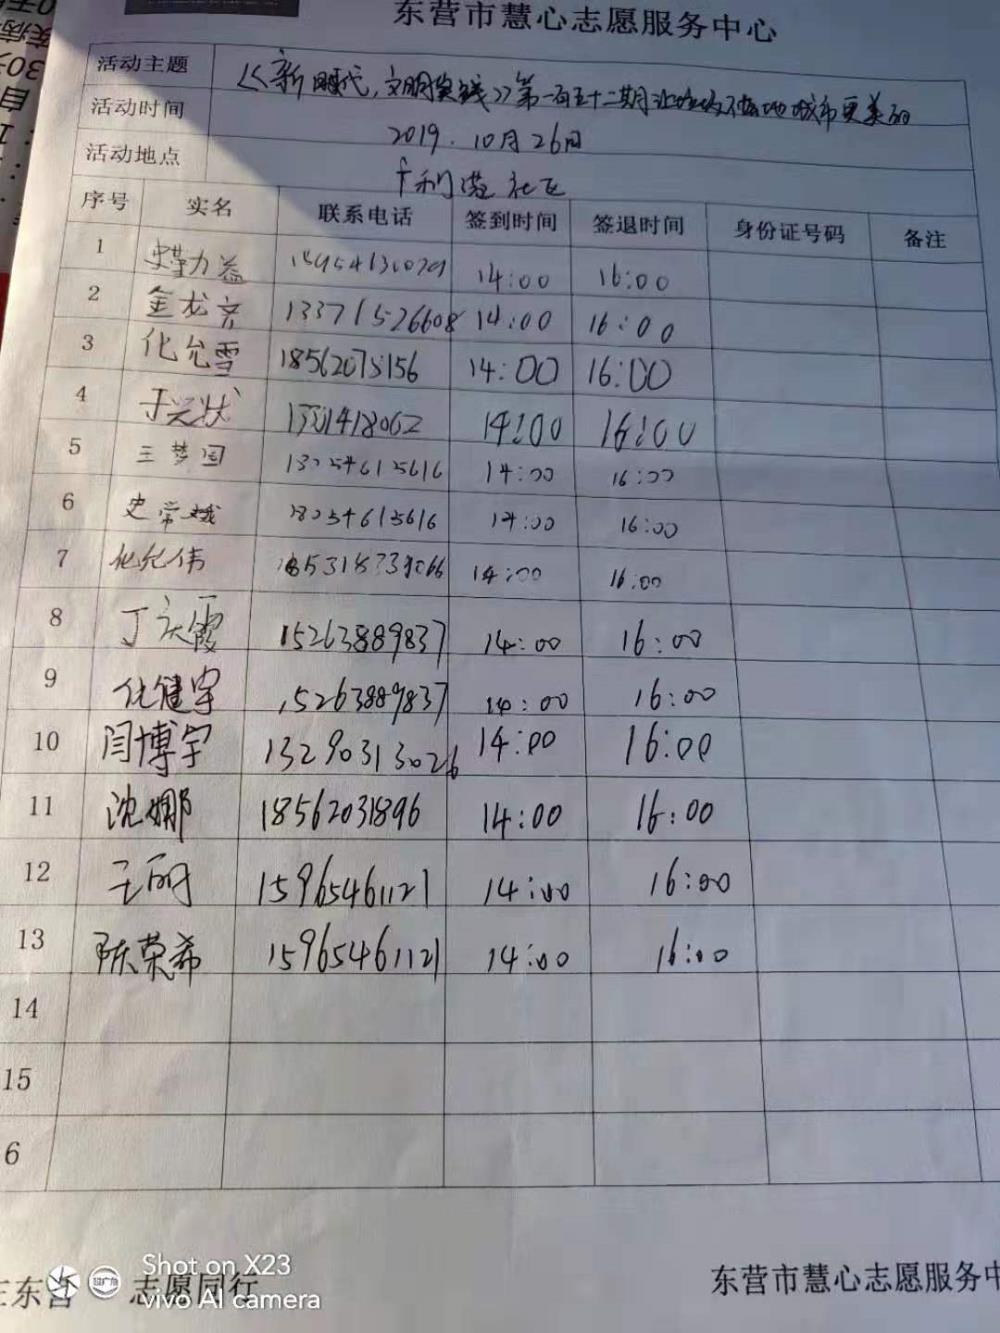 东营市慧心志愿服务中心
活动主题 《新时代，文明实践》第一百五十二期让垃圾不落地城市更美丽
活动时间 2019.10月26日
活动地点 利港社区
序号 实名 联系电话 签到时间 签退时间 身份证号码 备注
1 14:00 16:00
2 金龙 13371526608 14:00 16:00
3 化允雪 18562075156 14:00 16:00
4 于兴 14:00 16:00
5 王梦国 14:00 16:00
6 史常娥 18054615616 14:00 16:00
7 化纪伟 14:00 16:00
8 丁庆霞 15263889837 14:00 16:00
9 化健宇 15263889837 14:00 16:00
10 闫博宇 13290313026 14:00 16:00
11 沈娜 18562031896 14:00 16:00
12 王丽 15965461121 14:00 16:00
13 陈荣希 15965461121 14:00 16:00
14
15
6
在东营 志愿同行 东营市慧心志愿服务中
Shot on X23
vivo AI camera